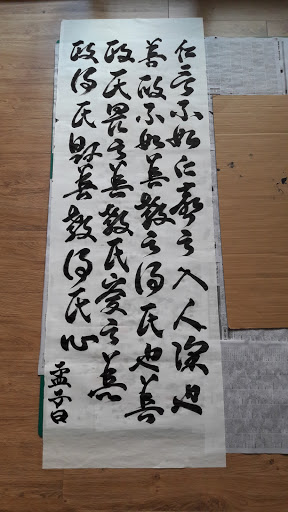 仁言不如仁聲之入人深也
善政不如善教之得民也善
政民畏之善教民愛之善
政得民財善教得民心
孟子曰